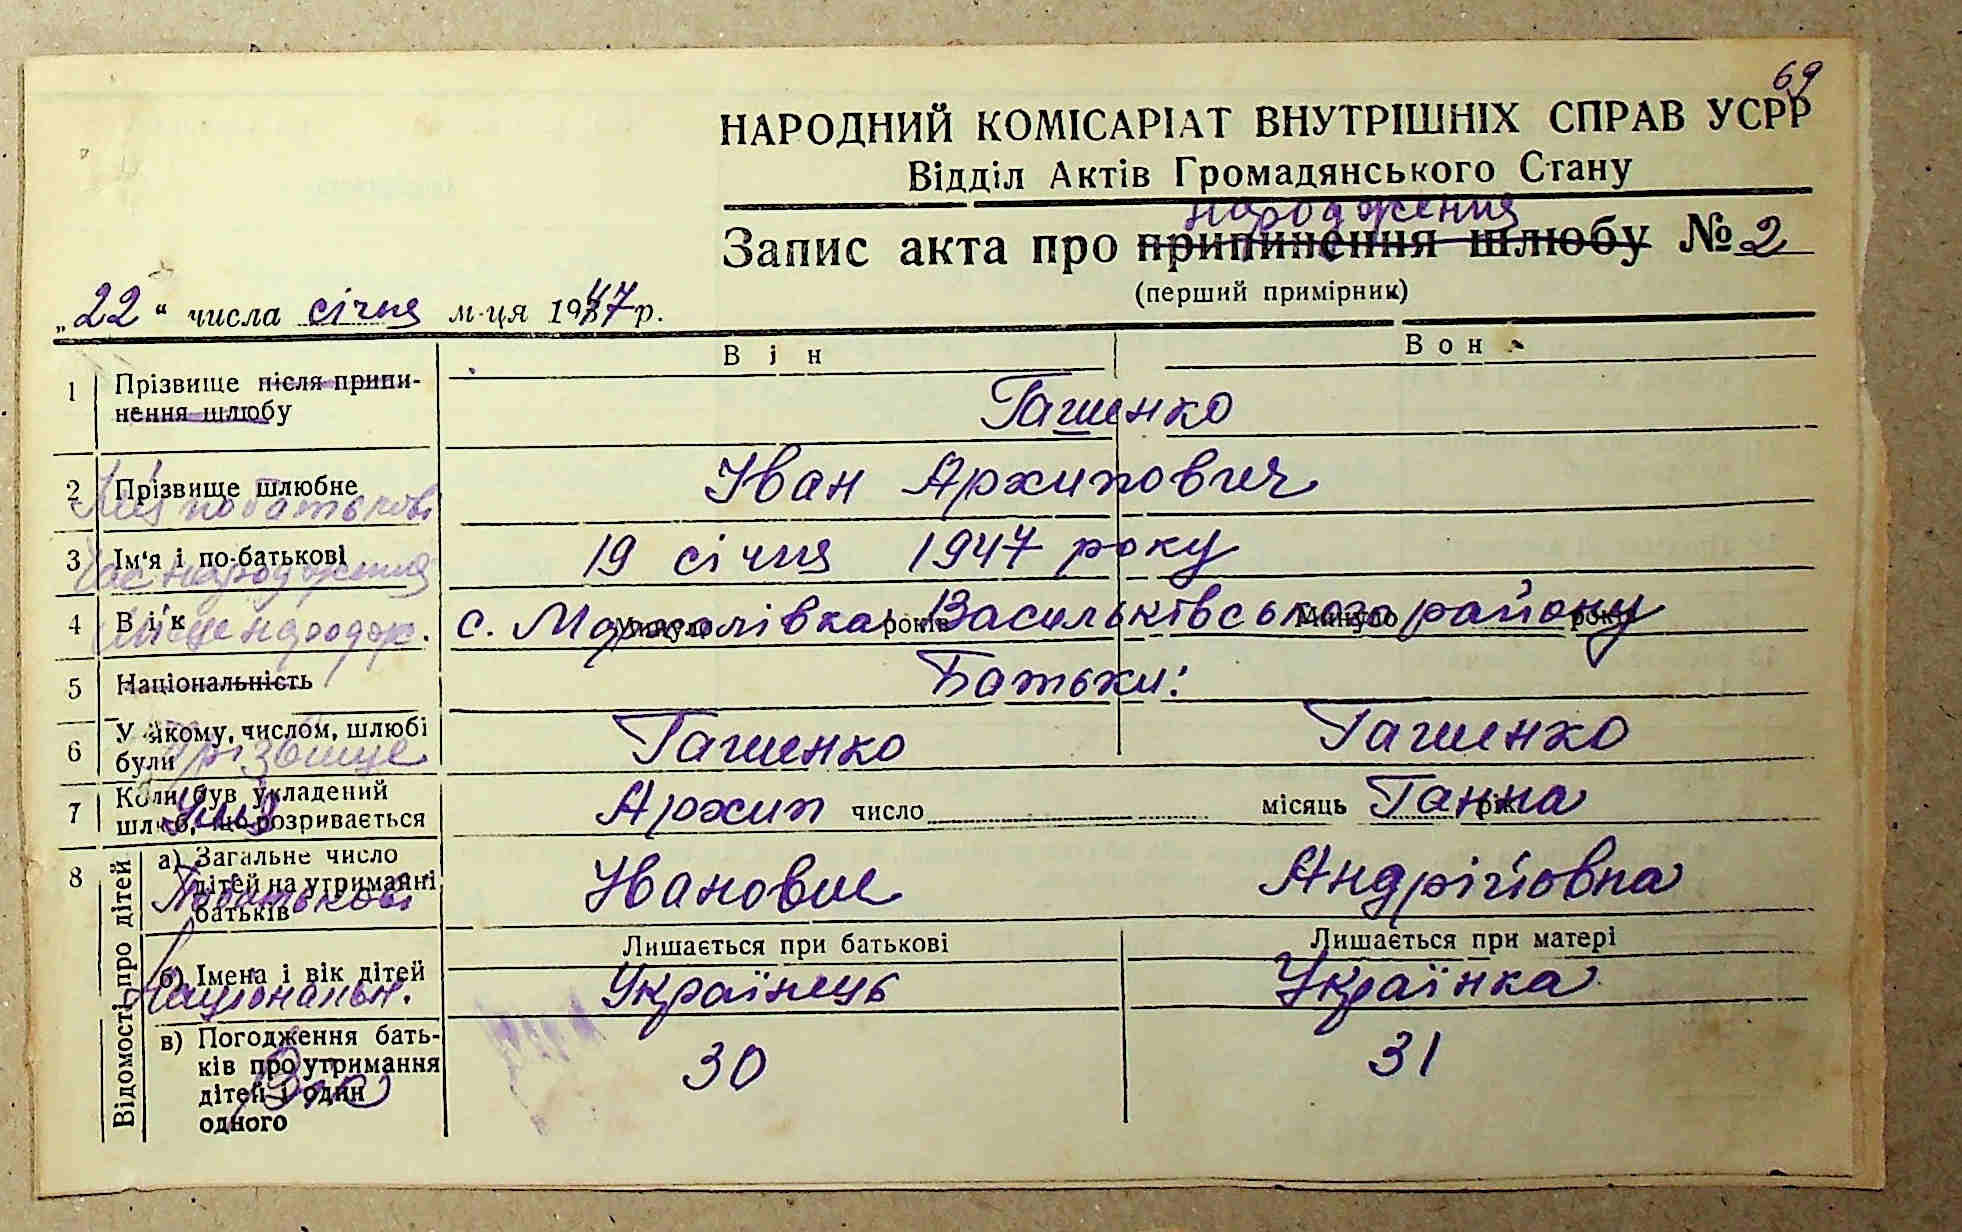 69
НАРОДНИЙ КОМІСАРІАТ ВНУТРІШНІХ СПРАВ УСРР
Відділ Актів Громадянського Стану
народження
Запис акта про припинення шлюбу № 2
(перший примірник)
„22“ числа січня м-ця 1947 р.
Він Вона
1 Прізвище після припи-
нення шлюбу
Гашенко
2 Прізвище шлюбне
Ім'я по батькові
Іван Архипович
3 Ім'я і по-батькові
Час народження
19 січня 1947 року
4 Вік Минуло років Минуло років
Місце народж. с. Манжолівка Васильківського району
5 Національність
Батьки:
6 У якому, числом, шлюбі
були
Прізвище Гашенко Гашенко
7 Коли був укладений
шлюб, що розривається
Архип число місяць Ганна рік
8 Відомості про дітей
а) Загальне число
дітей на утриманні
батьків
По батькові Іванович Андріївна
Лишається при батькові Лишається при матері
б) Імена і вік дітей
Національн. Українець Українка
в) Погодження бать-
ків про утримання
дітей і один
одного
Вік 30 31